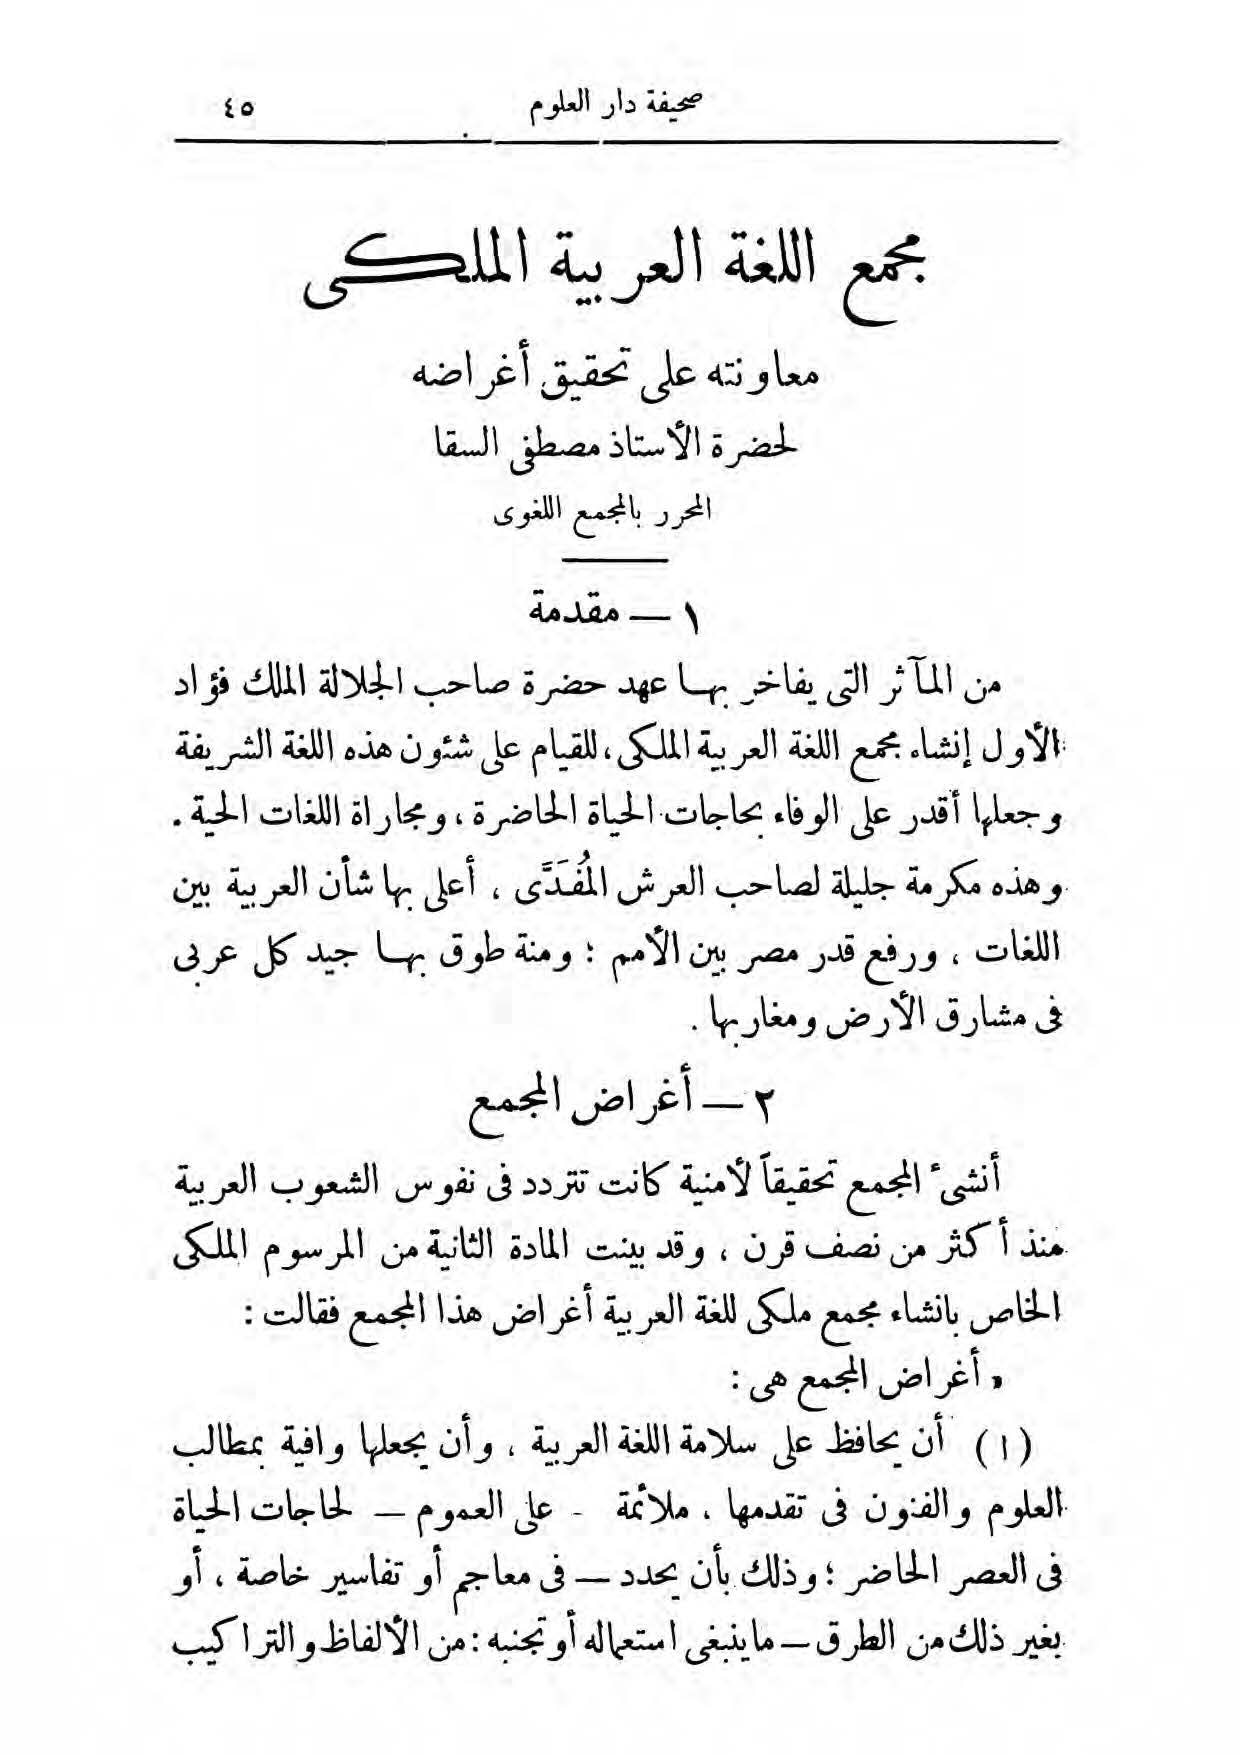 صحيفة دار العلوم ٤٥
مجمع اللغة العربية الملكى
معاونته على تحقيق أغراضه
لحضرة الأستاذ مصطفى السقا
المحرر بالمجمع اللغوى
١ — مقدمة
من المآثر التى يفاخر بها عهد حضرة صاحب الجلالة الملك فؤاد
الأول إنشاء مجمع اللغة العربية الملكى، للقيام على شئون هذه اللغة الشريفة
وجعلها أقدر على الوفاء بحاجات الحياة الحاضرة، ومجاراة اللغات الحية .
وهذه مكرمة جليلة لصاحب العرش المُفَدَّى ، أعلى بها شأن العربية بين
اللغات ، ورفع قدر مصر بين الأمم ؛ ومنة طوق بها جيد كل عربى
فى مشارق الأرض ومغاربها .
٢ — أغراض المجمع
أنشىء المجمع تحقيقاً لأمنية كانت تتردد فى نفوس الشعوب العربية
منذ أكثر من نصف قرن ، وقد بينت المادة الثانية من المرسوم الملكى
الخاص بانشاء مجمع ملكى للغة العربية أغراض هذا المجمع فقالت :
« أغراض المجمع هى :
(١) أن يحافظ على سلامة اللغة العربية ، وأن يجعلها وافية بمطالب
العلوم والفنون فى تقدمها ، ملائمة - على العموم — لحاجات الحياة
فى العصر الحاضر ؛ وذلك بأن يحدد — فى معاجم أو تفاسير خاصة ، أو
بغير ذلك من الطرق — ما ينبغى استعماله أو تجنبه : من الألفاظ والتراكيب